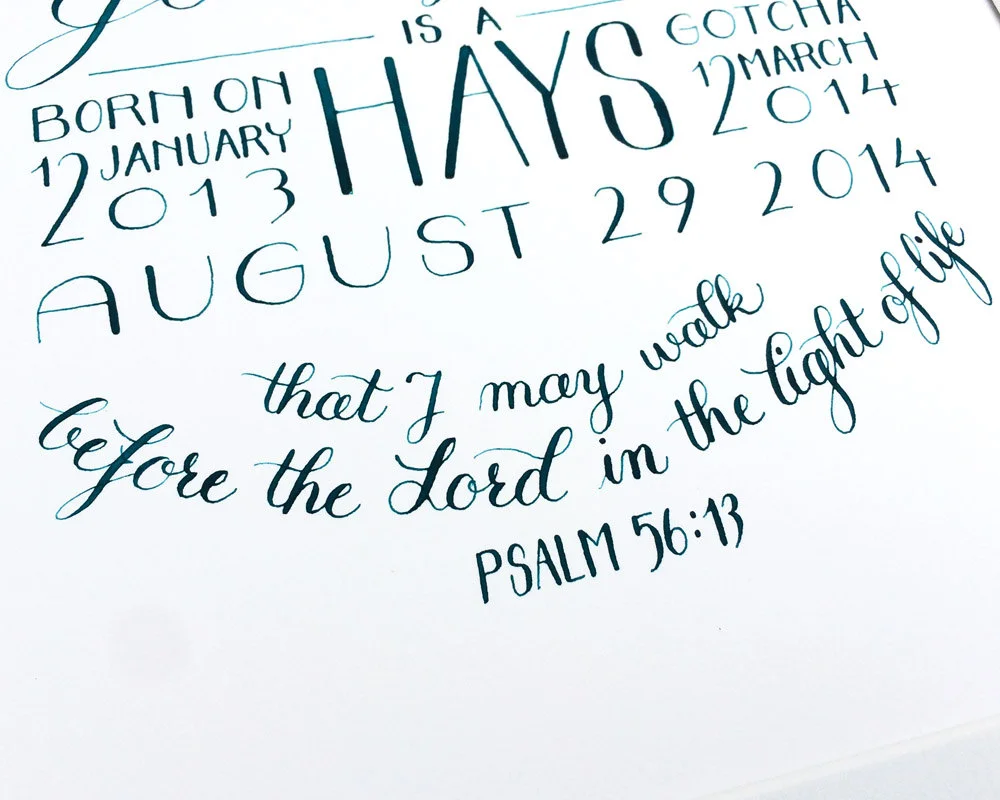 IS A
BORN ON
12 JANUARY
2013
HAYS
GOTCHA
12 MARCH
2014
AUGUST 29 2014
that I may walk
before the Lord in the light of life
PSALM 56:13